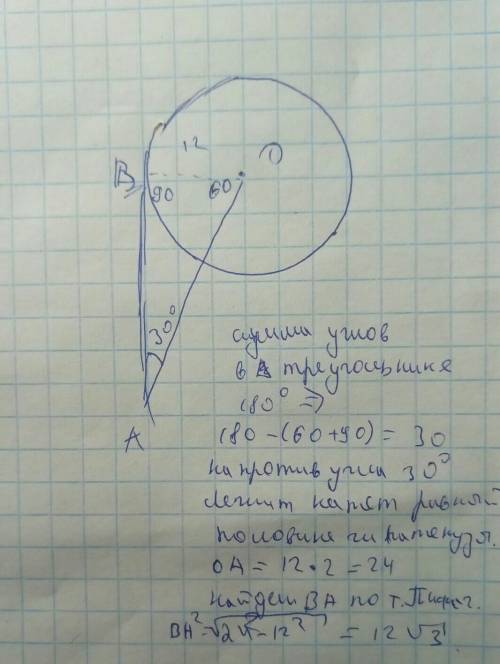 12
O
B
90
60
30°
A
сумма углов
в треугольнике
180° =>
180 - (60 + 90) = 30
напротив угла 30°
лежит катет равный
половине гипотенузы.
OA = 12 • 2 = 24
найдем BA по т. Пифаг.
BA² = √24² - 12² = 12√3